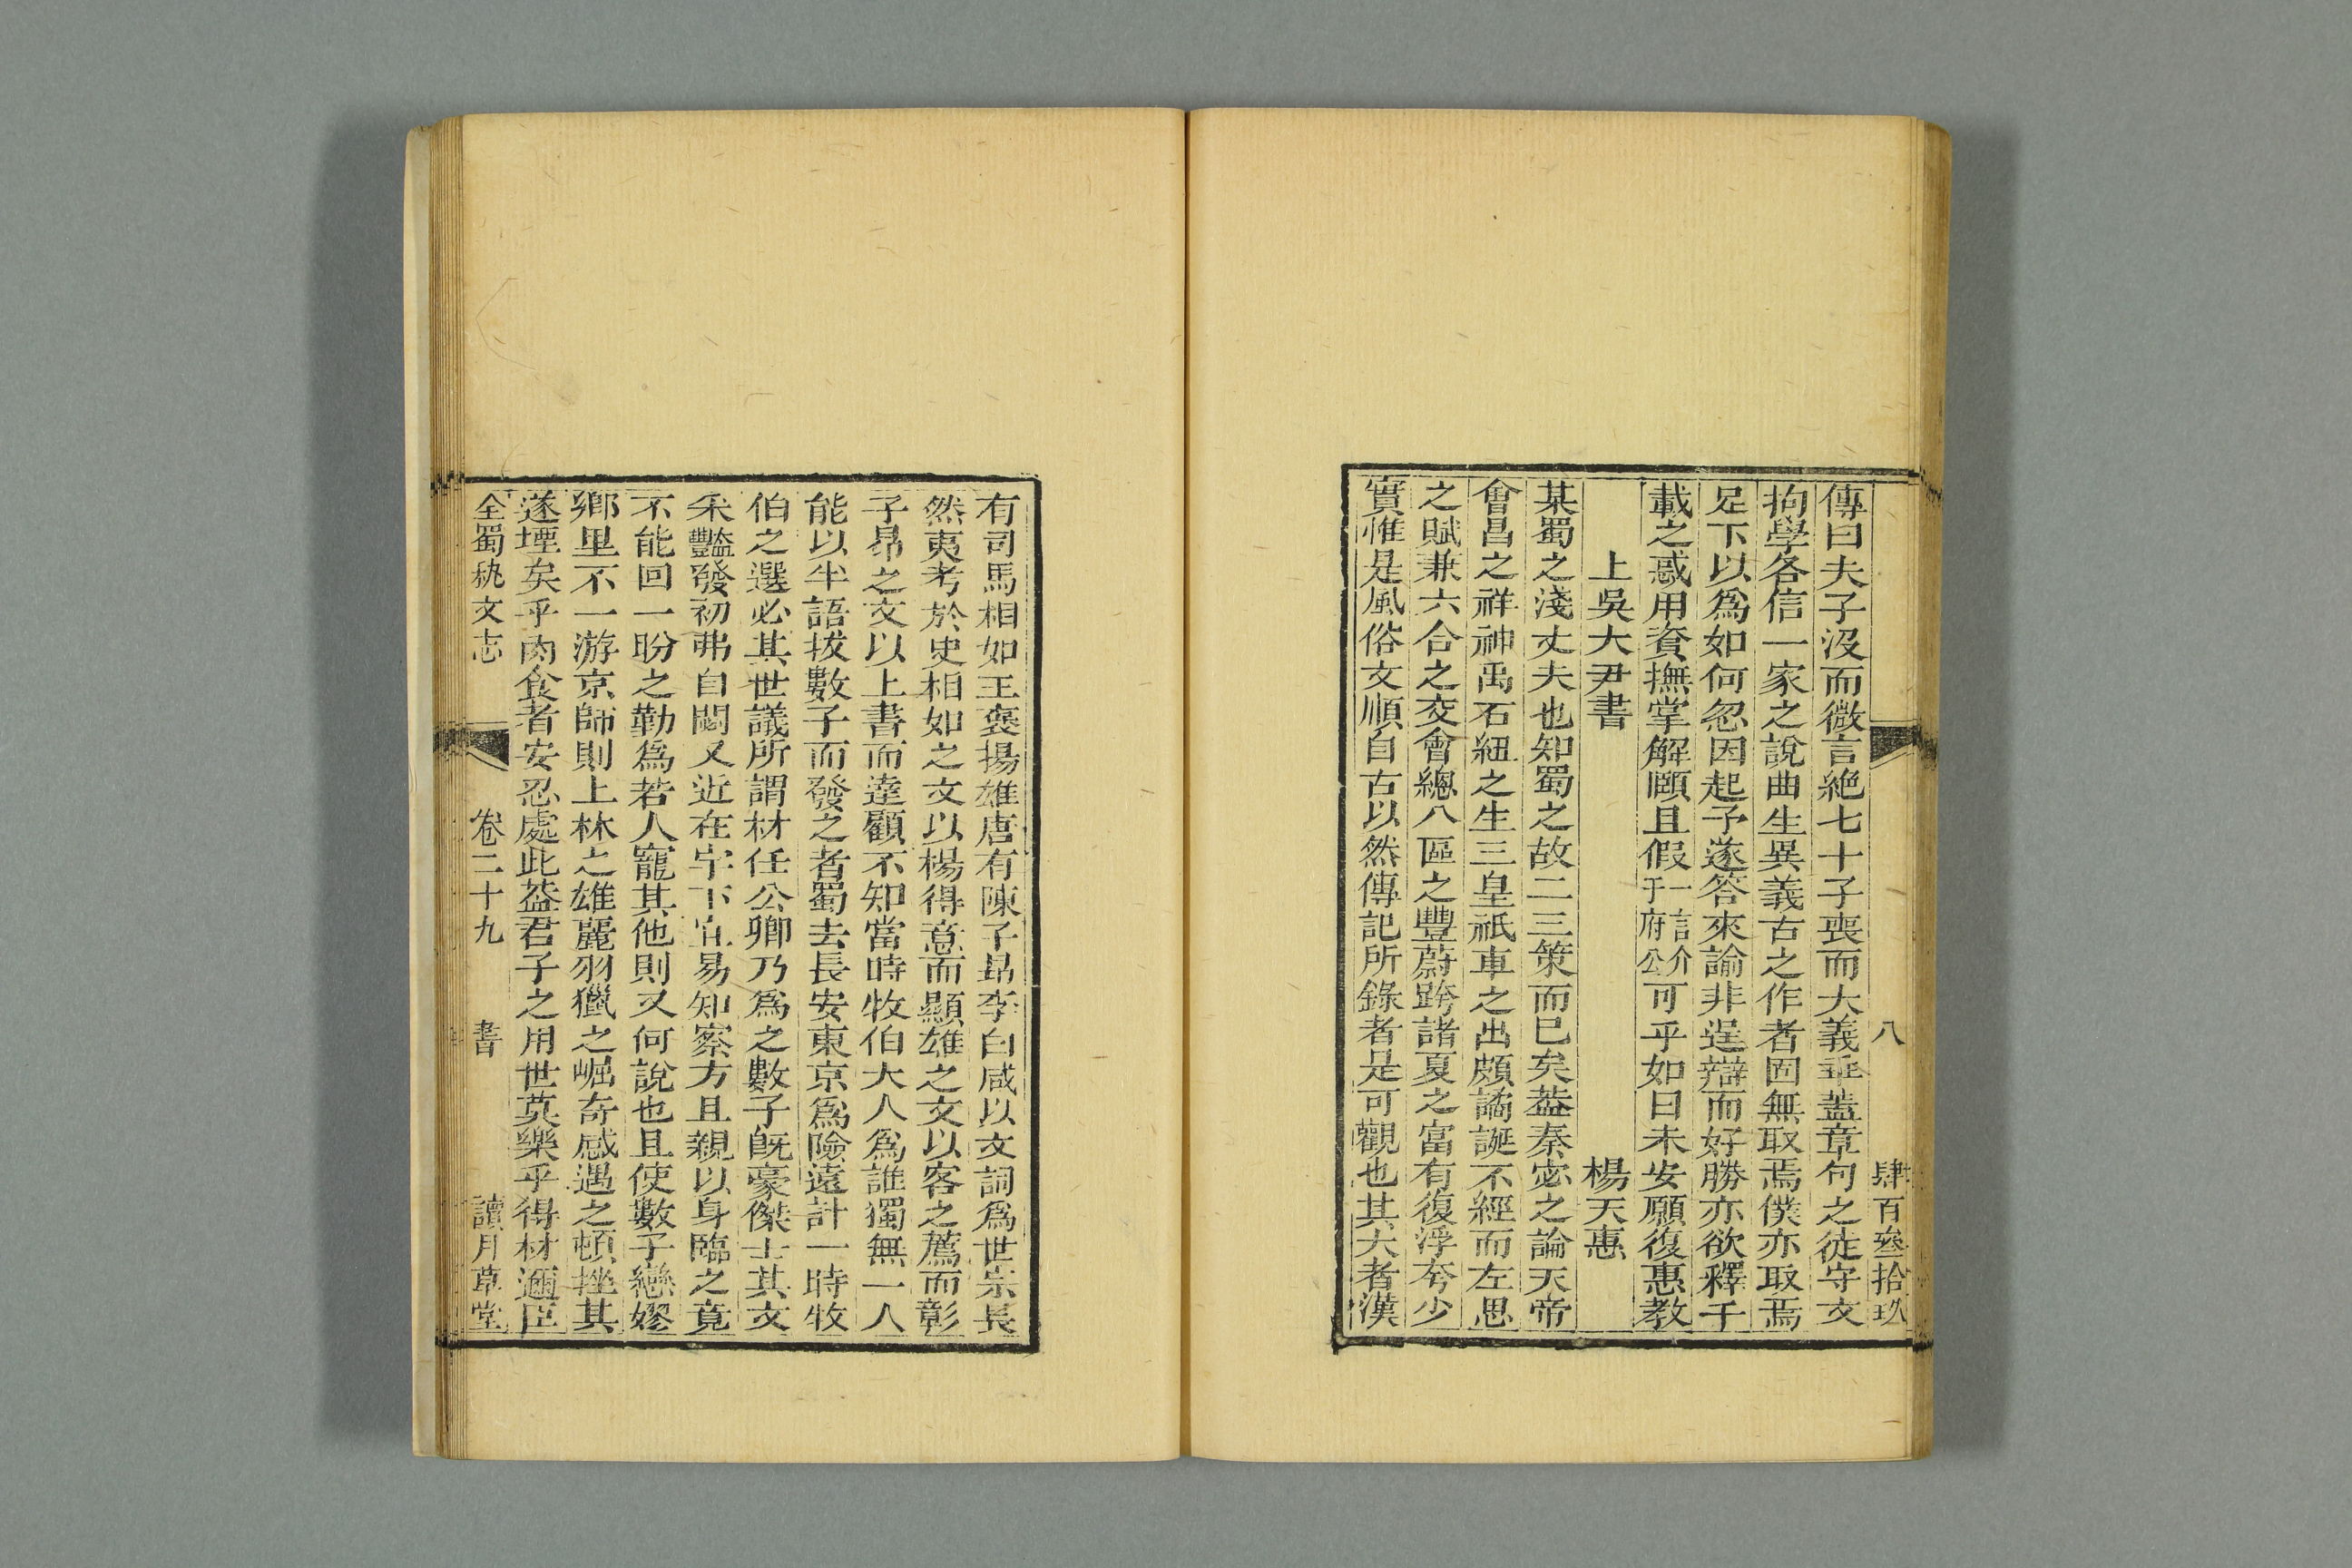 八 肆百叁拾玖
傳曰夫子沒而微言絕七十子喪而大義乖蓋章句之徒守文
拘學各信一家之說曲生異義古之作者固無取焉僕亦取焉
足下以為如何忽因起予遂答來論非逞辯而好勝亦欲釋千
載之惑用資撫掌解頤且假一言介于府公可乎如曰未安願復惠教
上吳大尹書 楊天惠
某蜀之淺丈夫也知蜀之故二三策而已矣葢秦宓之論天帝
會昌之祥神禹石紐之生三皇祇車之出頗譎誕不經而左思
之賦兼六合之交會總八區之豐蔚跨諸夏之富有復浮夸少
實惟是風俗文順自古以然傳記所錄者是可觀也其大者漢
有司馬相如王褒揚雄唐有陳子昻李白咸以文詞爲世宗長
然夷考於史相如之文以楊得意而顯雄之文以客之薦而彰
子昻之文以上書而達顧不知當時牧伯大人爲誰獨無一人
能以半語拔數子而發之者蜀去長安東京爲險遠計一時牧
伯之選必其世議所謂材任公卿乃爲之數子旣豪傑士其文
采豔發初弗自閟又近在宇下宜易知察方且親以身臨之竟
不能回一盼之勤爲若人寵其他則又何說也且使數子戀嫪
鄉里不一游京師則上林之雄麗羽獵之崛奇感遇之頓挫其
遂堙矣乎肉食者安忍處此葢君子之用世莫樂乎得材邇臣
全蜀秇文志 卷二十九 書 讀月草堂